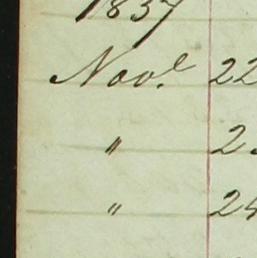 1857
Nov.r 22
" 2
" 24